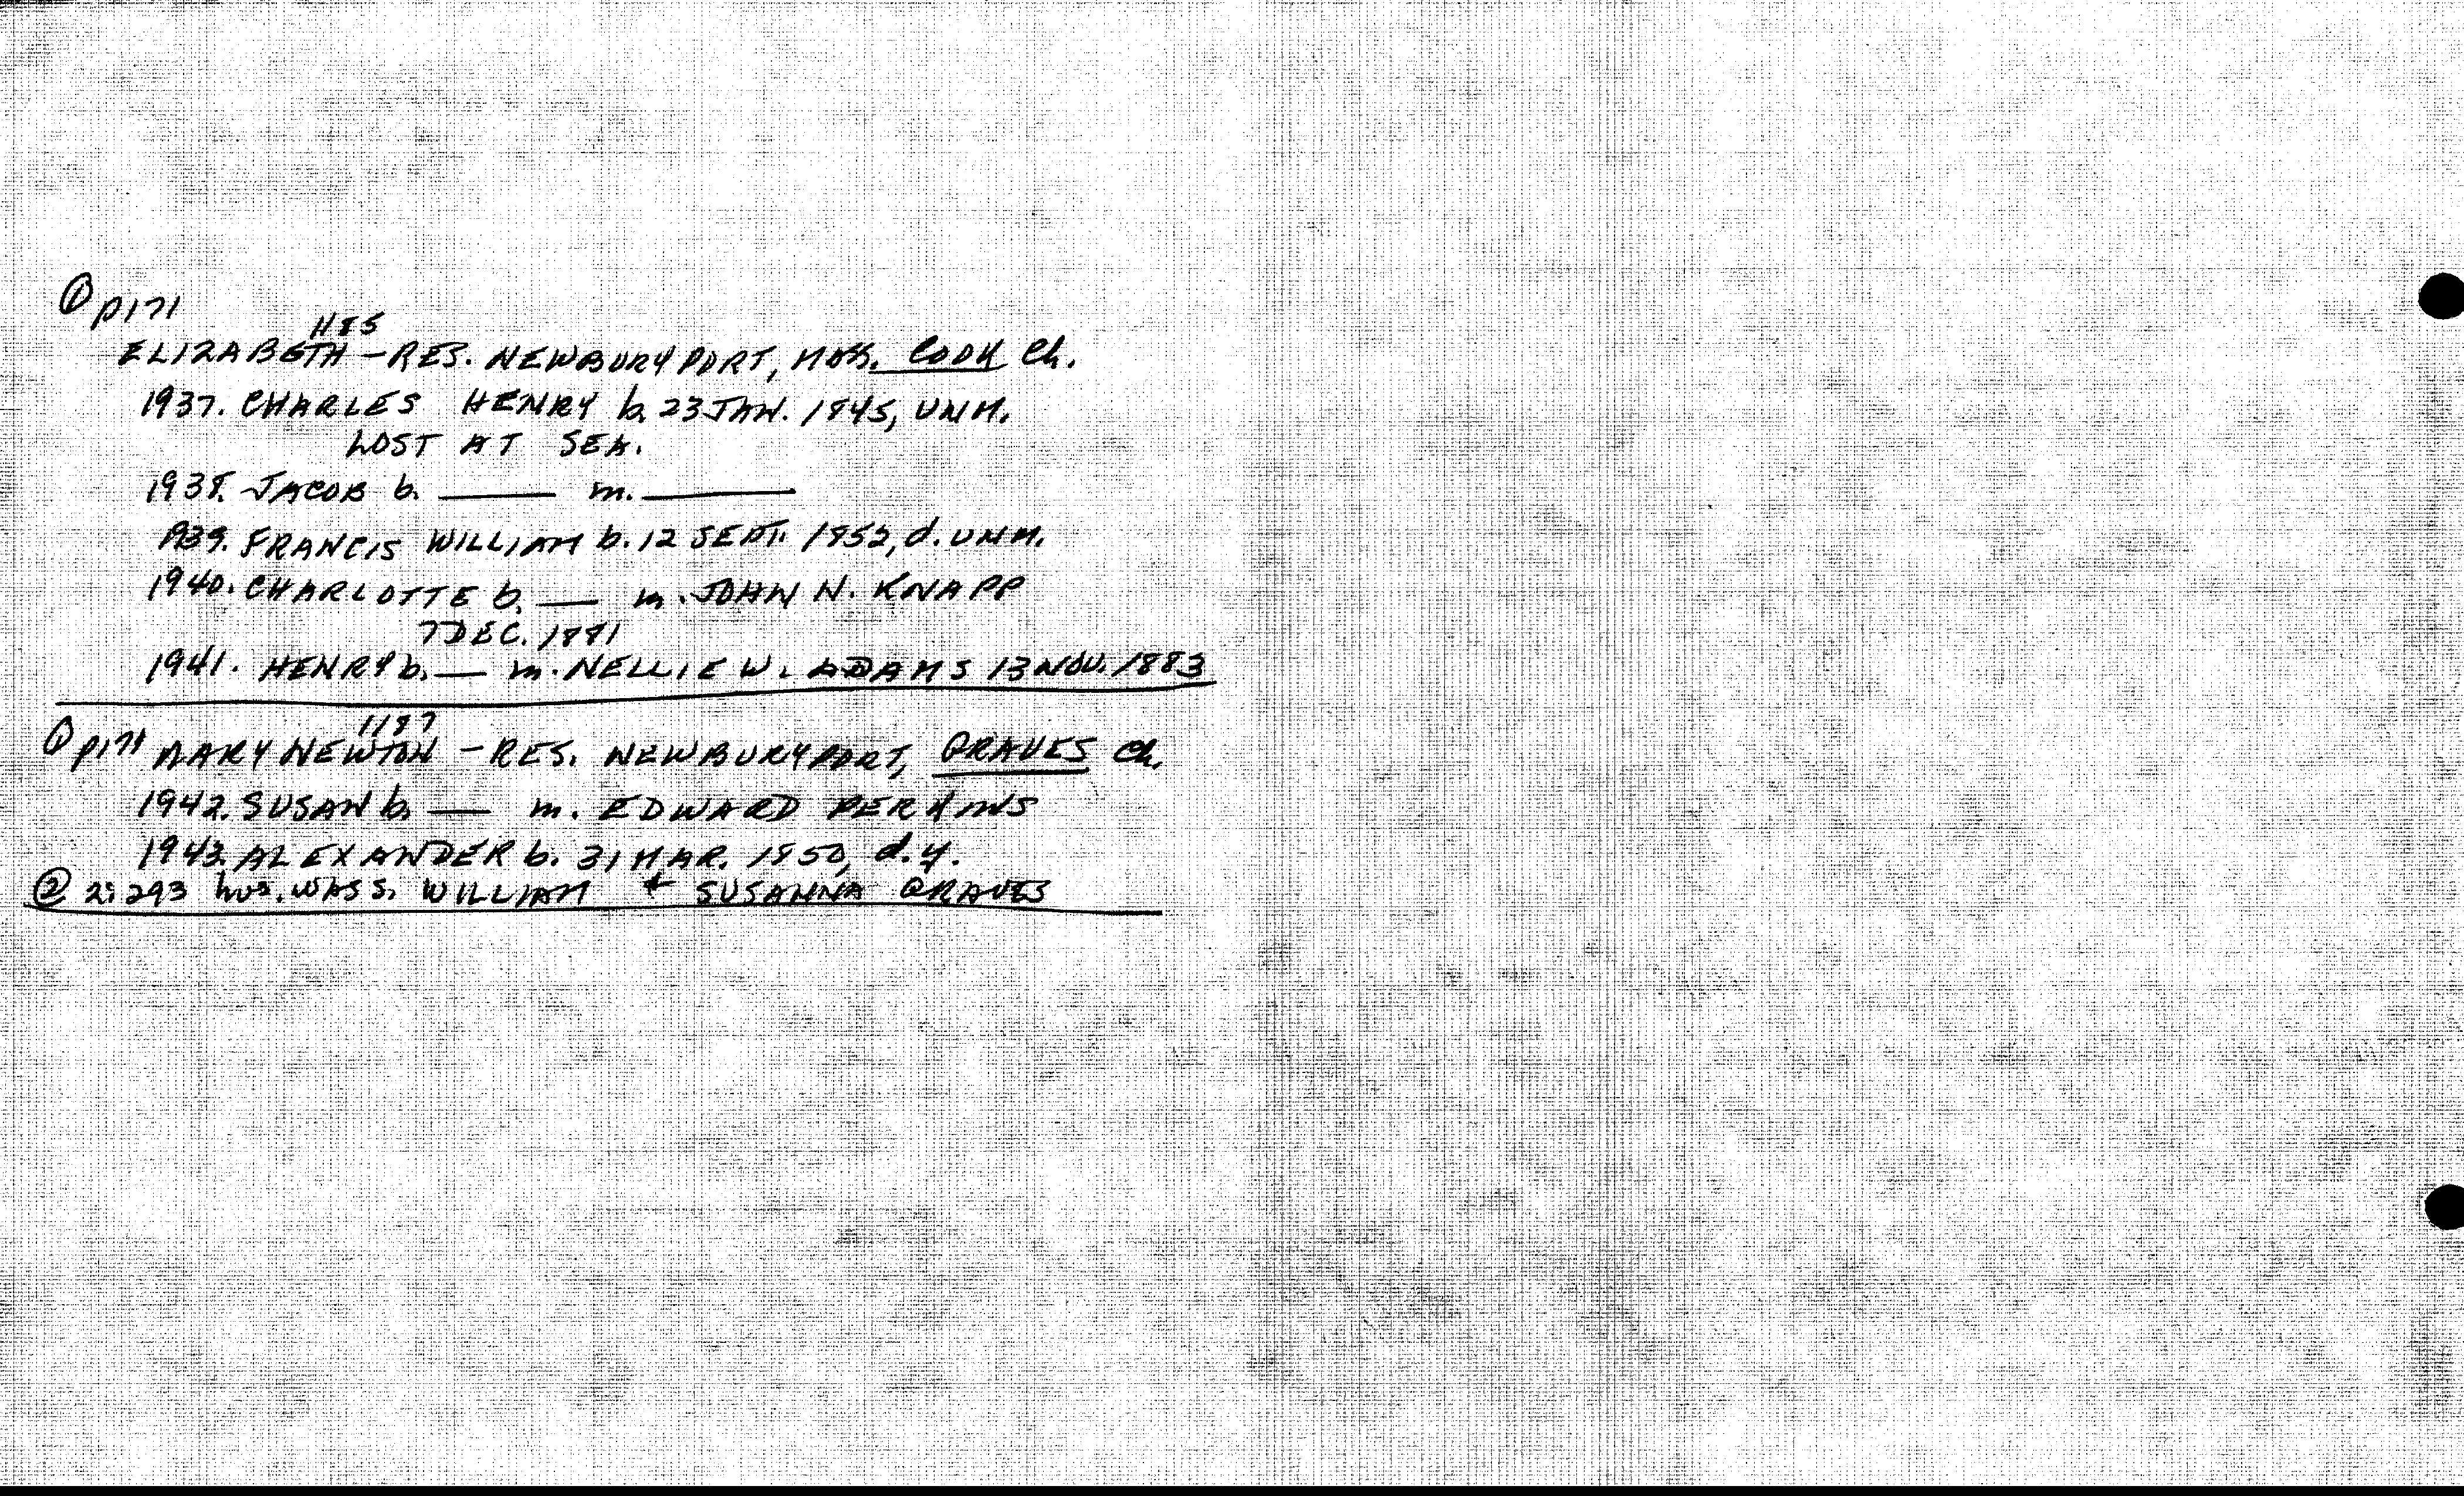 ① p171
1185
ELIZABETH - RES. NEWBURYPORT, MASS. CODY Ch.
1937. CHARLES HENRY b. 23 JAN. 1845, UNM.
LOST AT SEA.
1938. JACOB b. ——— m. ———
1939. FRANCIS WILLIAM b. 12 SEPT. 1852, d. UNM.
1940. CHARLOTTE b. —— m. JOHN N. KNAPP
7 DEC. 1881
1941. HENRY b. —— m. NELLIE W. ADAMS 13 NOV. 1883
1187
① p171 MARY NEWTON - RES. NEWBURYPORT, GRAVES Ch.
1942. SUSAN b. —— m. EDWARD PERKINS
1943. ALEXANDER b. 31 MAR. 1850, d.y.
② 2:293 hus. WAS S. WILLIAM + SUSANNA GRAVES